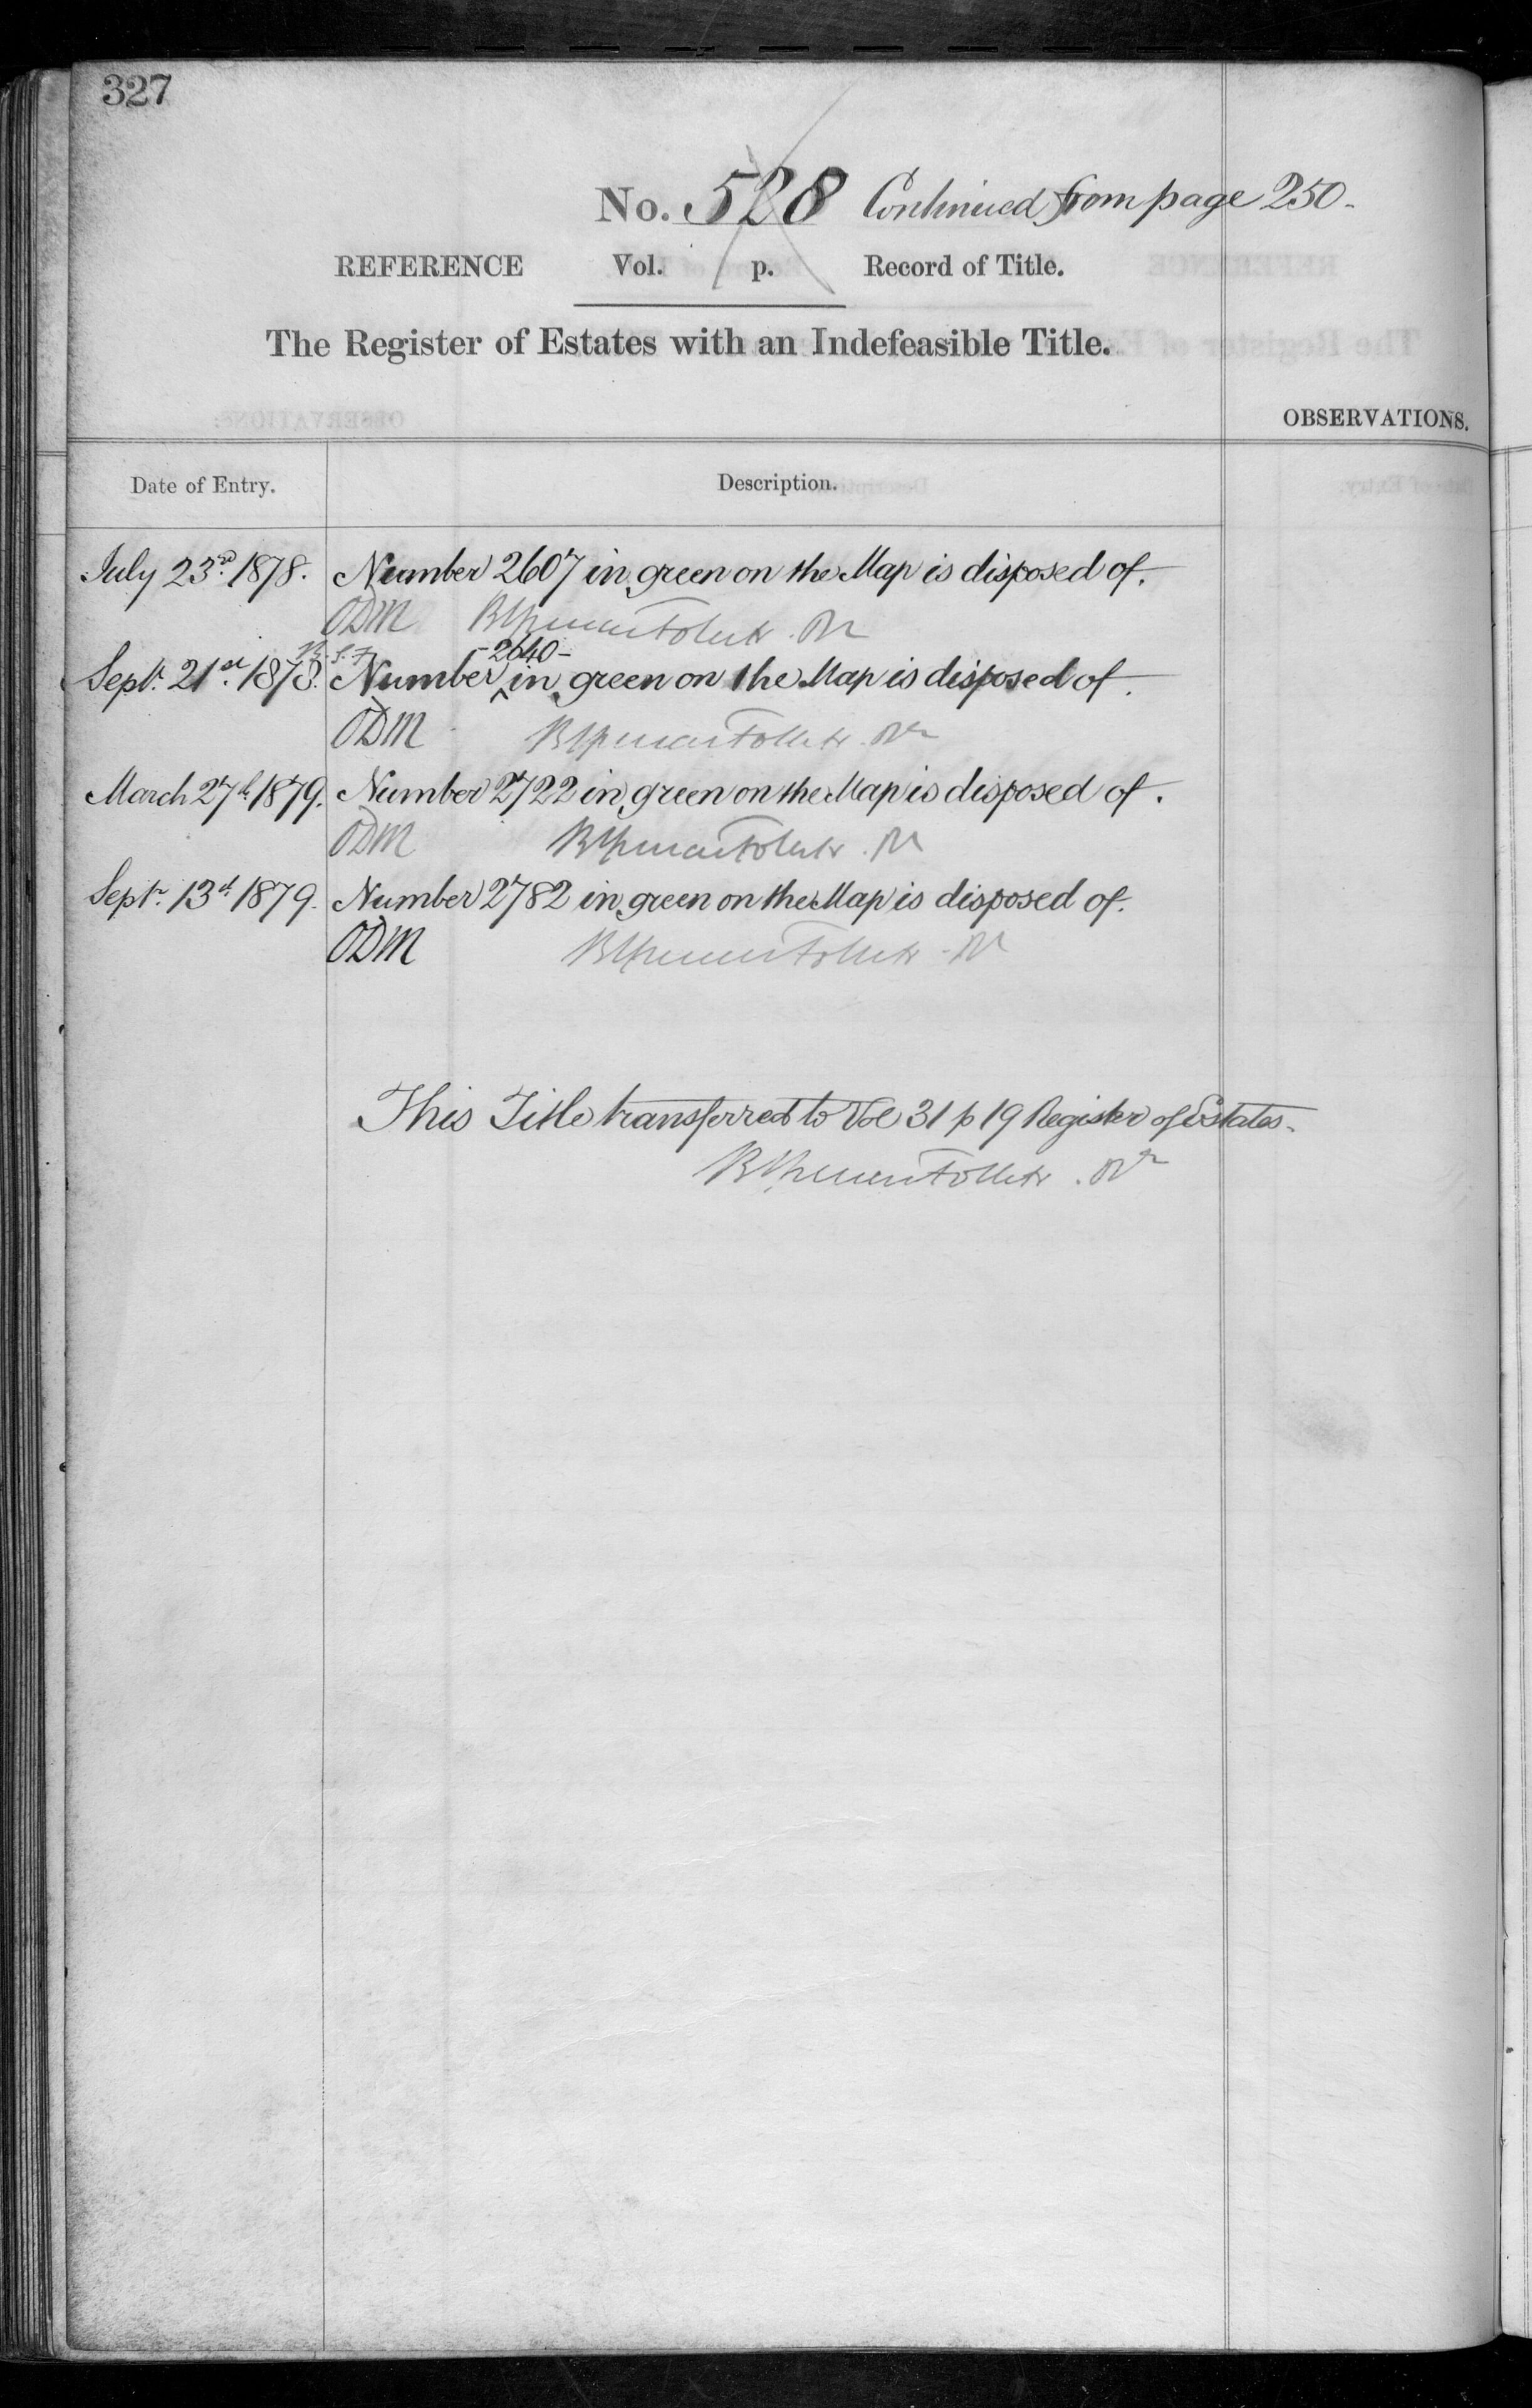 327
No. 528 Continued from page 250-
REFERENCE Vol. p. Record of Title.
The Register of Estates with an Indefeasible Title.
OBSERVATIONS.
Date of Entry. Description.
July 23rd 1878. Number 2607 in green on the Map is disposed of.
ODM
-2640-
Sept. 21st 1878. Number ^ in green on the Map is disposed of.
ODM
March 27th 1879. Number 2722 in green on the Map is disposed of.
ODM
Septr 13th 1879. Number 2782 in green on the Map is disposed of.
ODM
This Title transferred to Vol 31 p 19 Register of Estates-